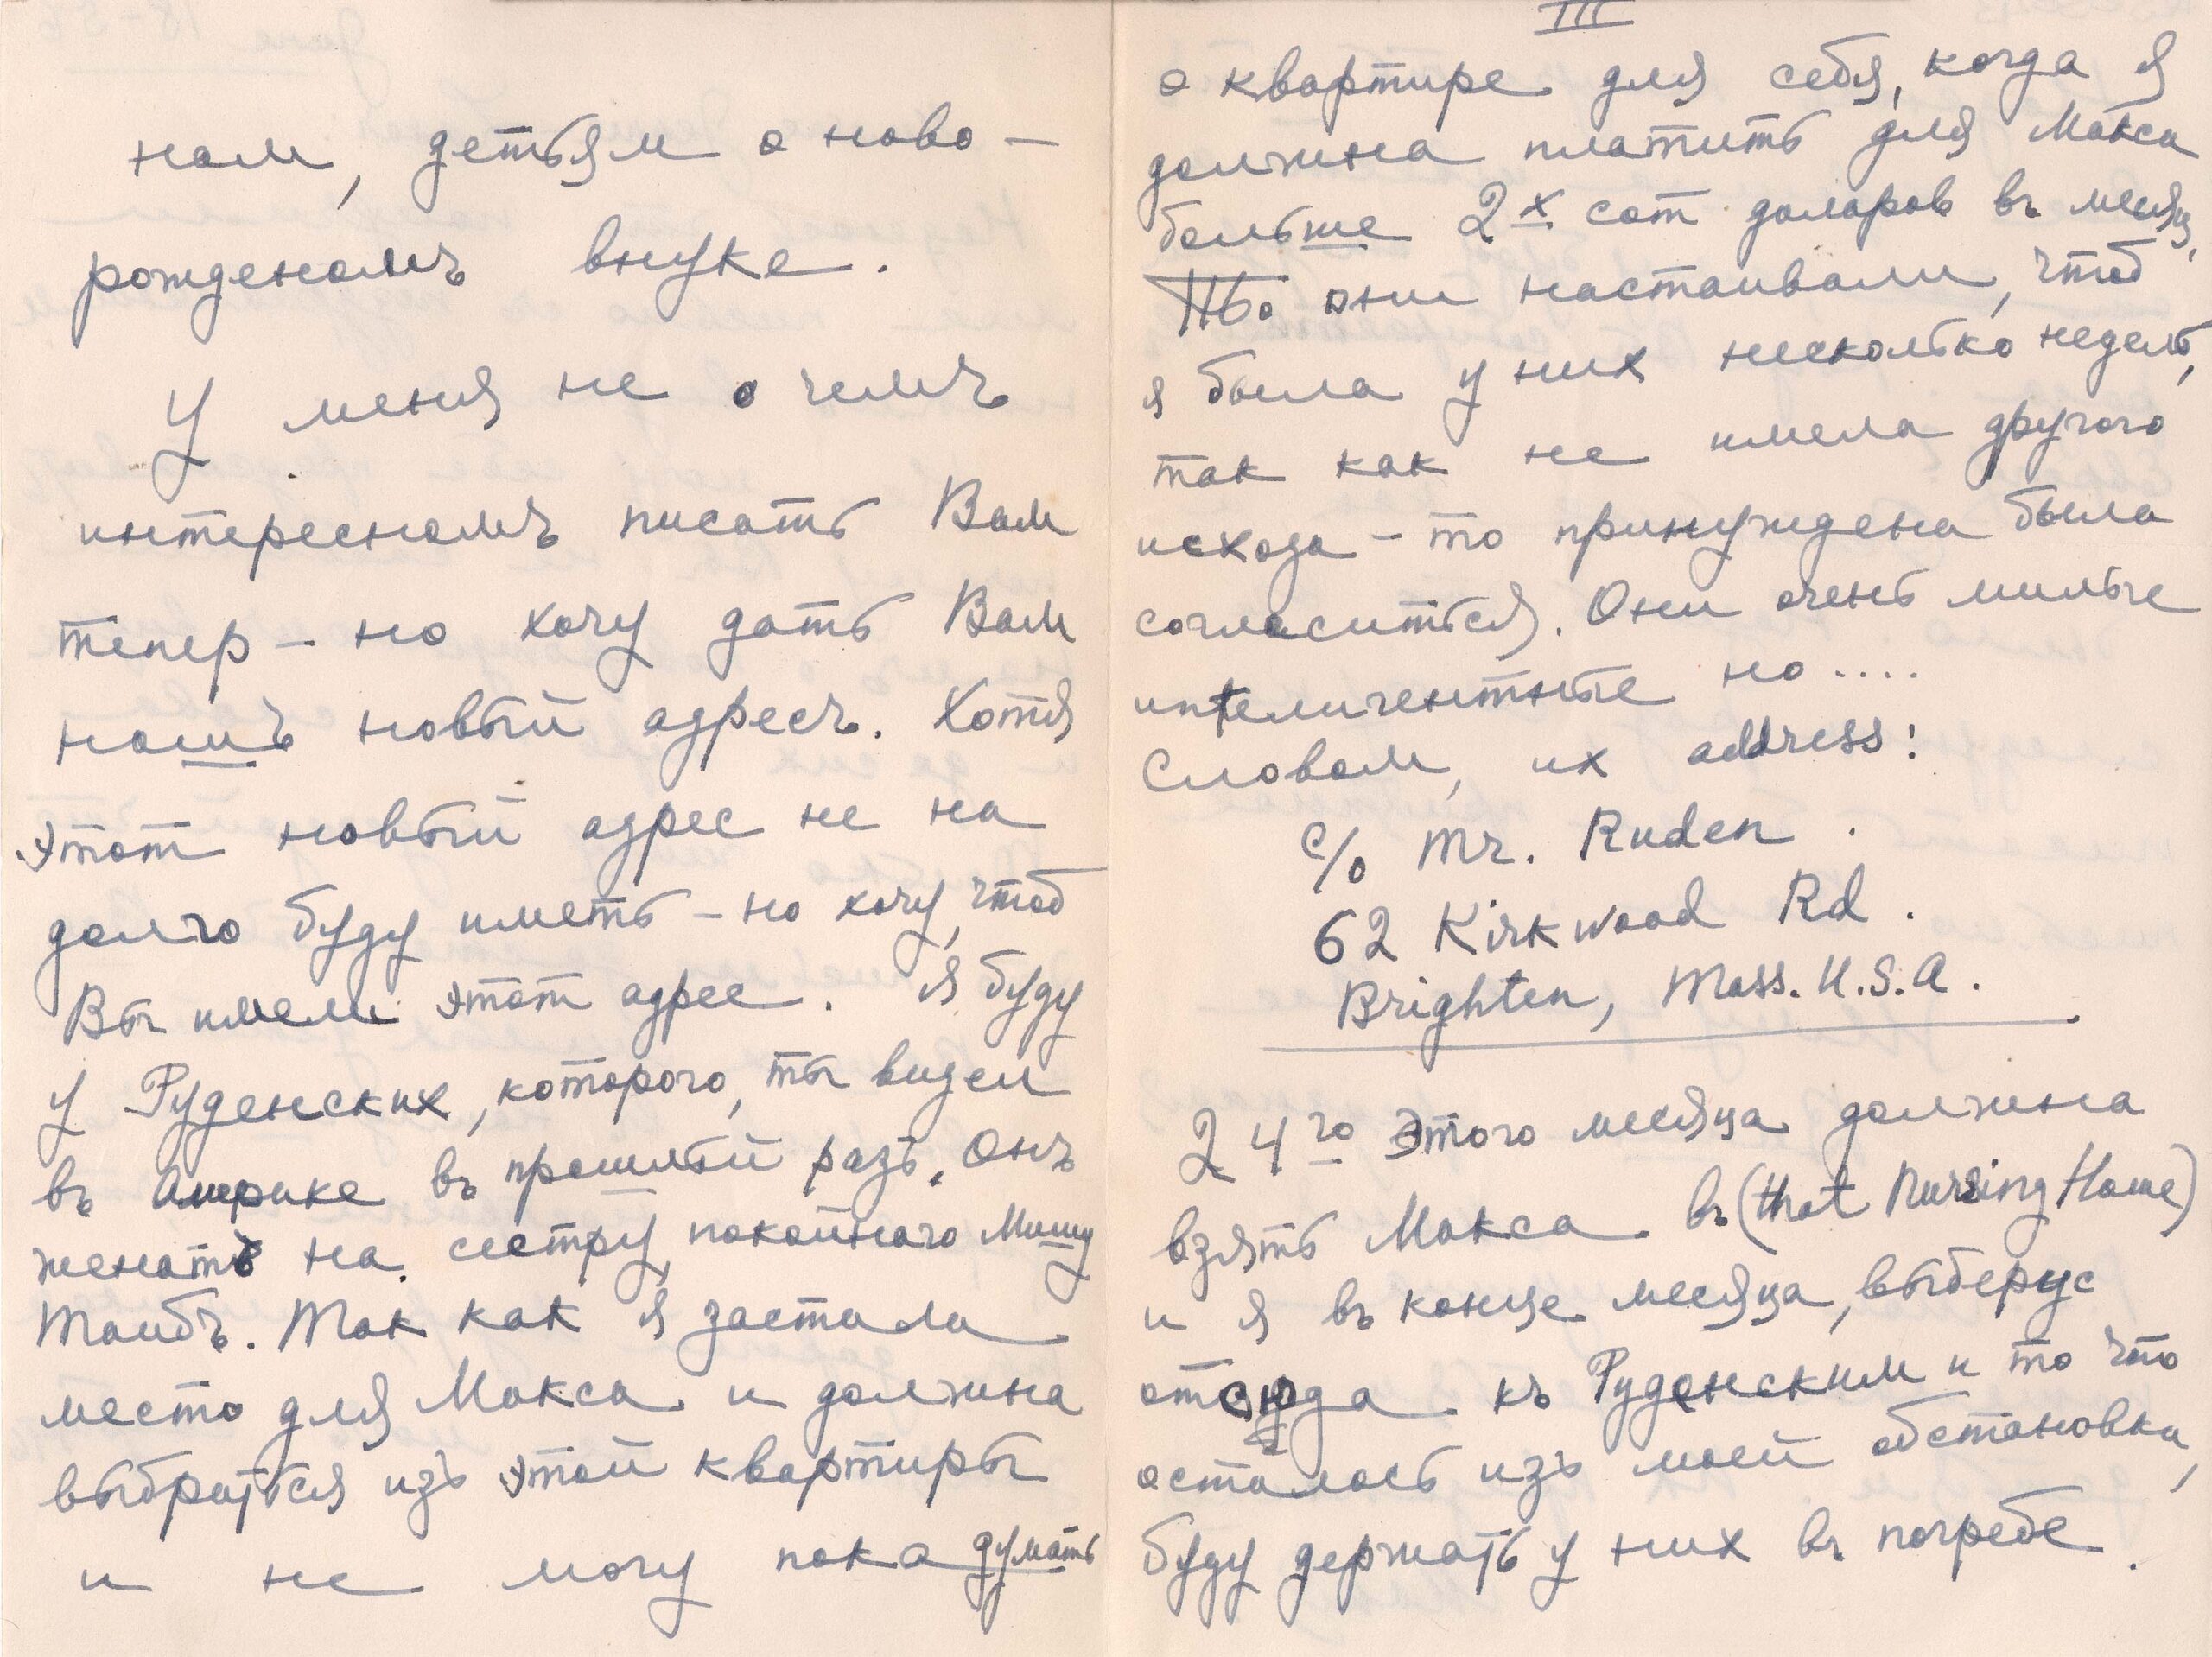 нам, детьям о ново-
рожденомъ внуке.
У меня не о чемъ
интересномъ писать Вам
тепер - но хочу дать Вам
нашъ новый адресъ. Хотя
этот новый адрес не на
долго буду иметь - но хочу, чтоб
Вы имели этот адрес. Я буду
у Руденских, которого, ты видел
въ Америке въ прошлый разъ. Онъ
женатъ на сестру покойного Мишу
Таубъ. Так как я застала
место для Макса и должна
выбраться изъ этой квартиры
и не могу пока думать
III
о квартире для себя, когда я
должна платить для Макса
больше 2х сот доларов въ месяц.
Ибо они настаивали, чтоб
я была у них несколько недель,
так как не имела другого
исхода - то принуждена была
согласиться. Они очень милые
интелигентные но ....
Словом, их address:
c/o Mr. Ruden.
62 Kirkwood Rd.
Brighten, Mass. U.S.A.
24го этого месяца должна
взять Макса въ (that Nursing Home)
и я въ конце месяца, выберус
отсюда къ Руденским и то что
осталось изъ моей обстановки,
буду держать у них въ погребе.